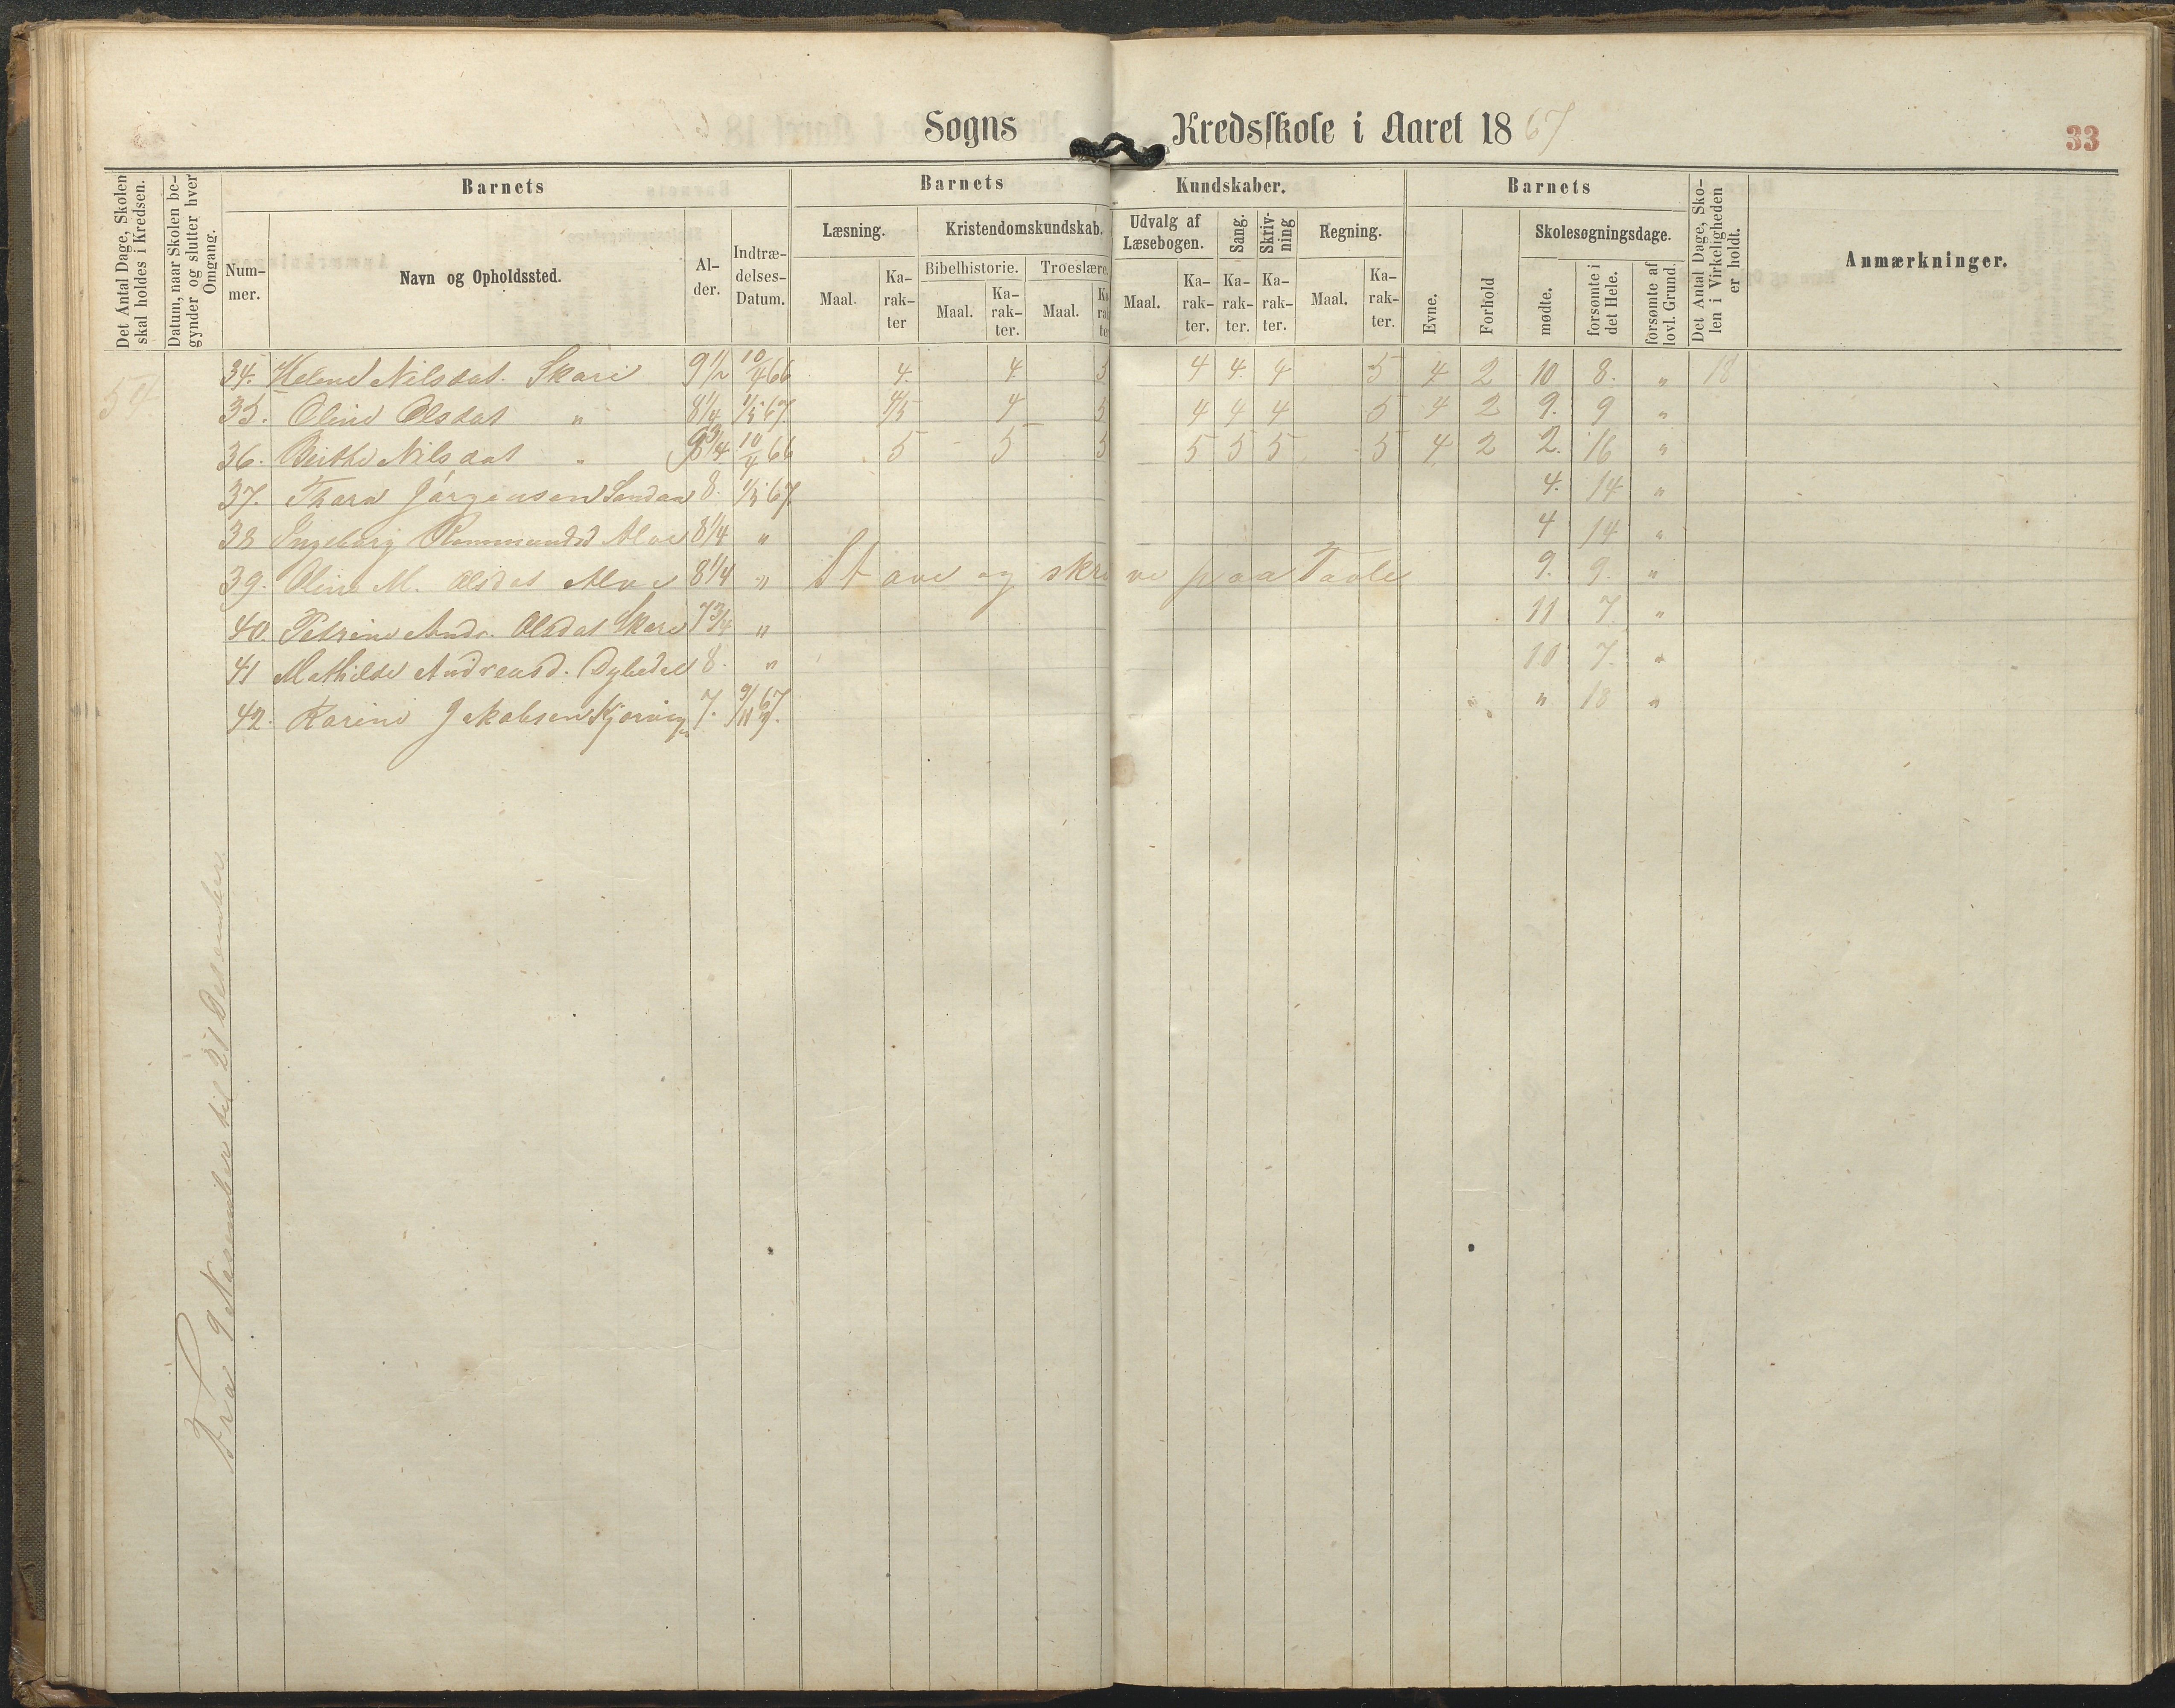 Sogns Kredsskole i Aaret 1867
33
Det Antal Dage, Skolen skal holdes i Kredsen.
Datum, naar Skolen begynder og slutter hver Omgang.
Barnets
Barnets Kundskaber.
Barnets
Det Antal Dage, Skolen i Virkeligheden er holdt.
Anmærkninger.
Nummer.
Navn og Opholdssted.
Alder.
Indtrædelses-Datum.
Læsning.
Kristendomskundskab.
Udvalg af Læsebogen.
Sang.
Skrivning
Regning.
Evne.
Forhold
Skolesøgningsdage.
Bibelhistorie.
Troeslære.
Maal.
Karakter
Maal.
Karakter.
Maal.
Karakter
Maal.
Karakter.
Karakter.
Karakter.
Maal.
Karakter.
mødte.
forsømte i det Hele.
forsømte af lovl. Grund.
54
34. Helene Nilsdat. Skare 9 1/2 10/4 66 4. 4. 5 4 4. 4 5 4 2 10 8. " 18
35. Oline Olsdat " 8 1/4 1/5 67. 4/5 4 5 4 4 4 5 4 2 9. 9 "
36. Berthe Nilsdat " 9 3/4 10/4 66 5 5 5 5 5 5 5 4 2 2. 16 "
37. Thara Jörgensen Sandaa 8. 1/5 67. 4. 14 "
38 Ingeborg Alve 8 1/4 " 4 14 "
39. Oline M. Olsdat Alve 8 1/4 " Stave og skrive paa Tavle 9. 9. "
40. Petrine Andr. Olsdat Skare 7 3/4 " 11 7. "
41 Mathilde Andreasd. Dybedal 8. " 10 7. "
42. Karine Jakobsen Kjørvig 7. 9/11 67. " 18 "
Fra 9 November til 21 Desember.